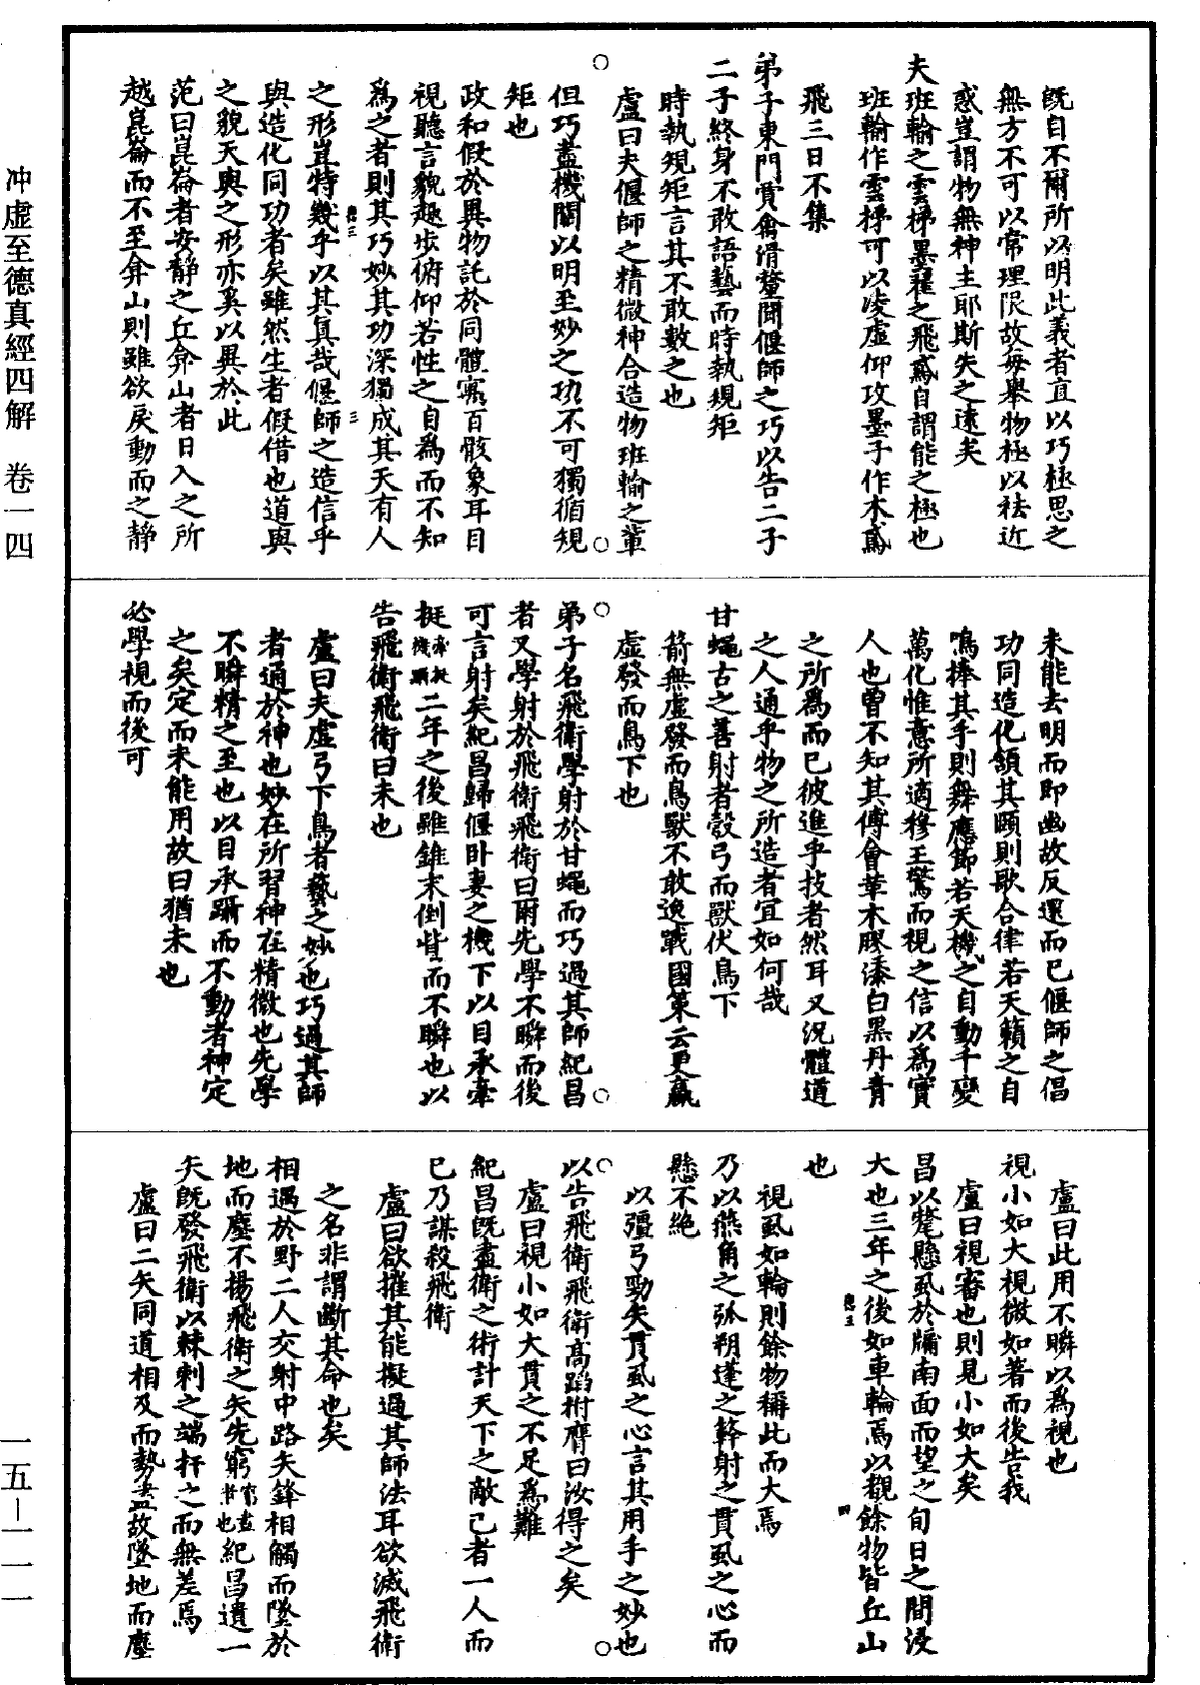 既自不爾所以明此義者直以巧極思之
無方不可以常理限故每舉物極以祛近
惑豈謂物無神主耶斯失之遠矣
夫班輸之雲梯墨翟之飛鳶自謂能之極也
班輸作雲梯可以凌虛仰攻墨子作木鳶
飛三日不集
弟子東門賈禽滑釐聞偃師之巧以告二子
二子終身不敢語藝而時執規矩
時執規矩言其不敢數之也
盧曰夫偃師之精微神合造物班輸之輩
但巧盡機關以明至妙之功不可獨循規
矩也
政和假於異物託於同體寓百骸象耳目
視聽言貌趨步俯仰若性之自為而不知
為之者則其巧妙其功深獨成其天有人
之形豈特幾乎以其真哉偃師之造信乎
與造化同功者矣雖然生者假借也道與
之貌天與之形亦奚以異於此
范曰崑崙者安靜之丘弇山者日入之所
越崑崙而不至弇山則雖欲戾動而之靜
未能去明而即幽故反還而已偃師之倡
功同造化頷其頤則歌合律若天籟之自
鳴捧其手則舞應節若天機之自動千變
萬化惟意所適穆王驚而視之信以為實
人也曾不知其傅會革木膠漆白黑丹青
之所為而已彼進乎技者然耳又況體道
之人通乎物之所造者宜如何哉
甘蠅古之善射者彀弓而獸伏鳥下
箭無虛發而鳥獸不敢逸戰國策云更羸
虛發而鳥下也
弟子名飛衛學射於甘蠅而巧過其師紀昌
者又學射於飛衛飛衛曰爾先學不瞬而後
可言射矣紀昌歸偃臥妻之機下以目承牽
挺牽挺機躡二年之後雖錐末倒眥而不瞬也以
告飛衛飛衛曰未也
盧曰夫虛弓下鳥者藝之妙也巧過其師
者通於神也妙在所習神在精微也先學
不瞬精之至也以目承躡而不動者神定
之矣定而未能用故曰猶未也
必學視而後可
盧曰此用不瞬以為視也
視小如大視微如著而後告我
盧曰視審也則見小如大矣
昌以氂懸虱於牖南面而望之旬日之間浸
大也三年之後如車輪焉以覩餘物皆丘山
也
視虱如輪則餘物稱此而大焉
乃以燕角之弧朔蓬之簳射之貫虱之心而
懸不絕
以彊弓勁矢貫虱之心言其用手之妙也
以告飛衛飛衛高蹈拊膺曰汝得之矣
盧曰視小如大貫之不足為難
紀昌既盡衛之術計天下之敵己者一人而
已乃謀殺飛衛
盧曰欲摧其能擬過其師法耳欲滅飛衛
之名非謂斷其命也矣
相遇於野二人交射中路矢鋒相觸而墜於
地而塵不揚飛衛之矢先窮窮盡者也紀昌遺一
矢既發飛衛以棘刺之端扞之而無差焉
盧曰二矢同道相及而勢盡故墜地而塵
冲虛至德真經四解　卷一四
一五－一一一